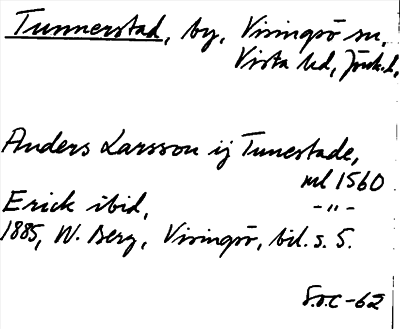 Tunnerstad, by, Visingsö sn,
Vista hd, Jönk. l,
Anders Larsson ij Tunestade,
ml 1560
Erick ibid, -"-
1885, W. Berg, Visingsö, bil. s. 5.
S.O.C -62